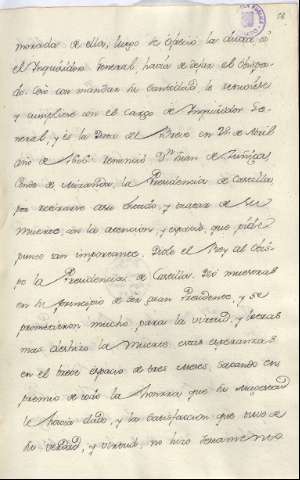 morada de ellos, luego se efectuó la
el Inquisidor General, havia de dejar el obispa-
do. Con mandar su Santidad, le renunciase
y cumpliese con el cargo de Inquisidor Ge-
neral, y es la Data del Breve en 26 de Abril
año de Renunció Dn. Juan de Zuñiga,
Conde de Miranda, la Presidencia de Castilla,
por retirarse a su Estado, y tratar de su
muerte, con la atencion, y espacio, que pide
punto tan importante. Diole el Rey al Obis-
po la Presidencia de Castilla. Dió muestras
en su principio de ser gran Presidente, y se
prometieron mucho, para la virtud, y letras
mas deshizo la Muerte estas esperanzas
en el breve espacio de tres meses, sacando en
premio de todo la honrra que su Magestad
le havia dado, y la satisfaccion que tuvo de
su verdad, y virtud, no hizo testamento